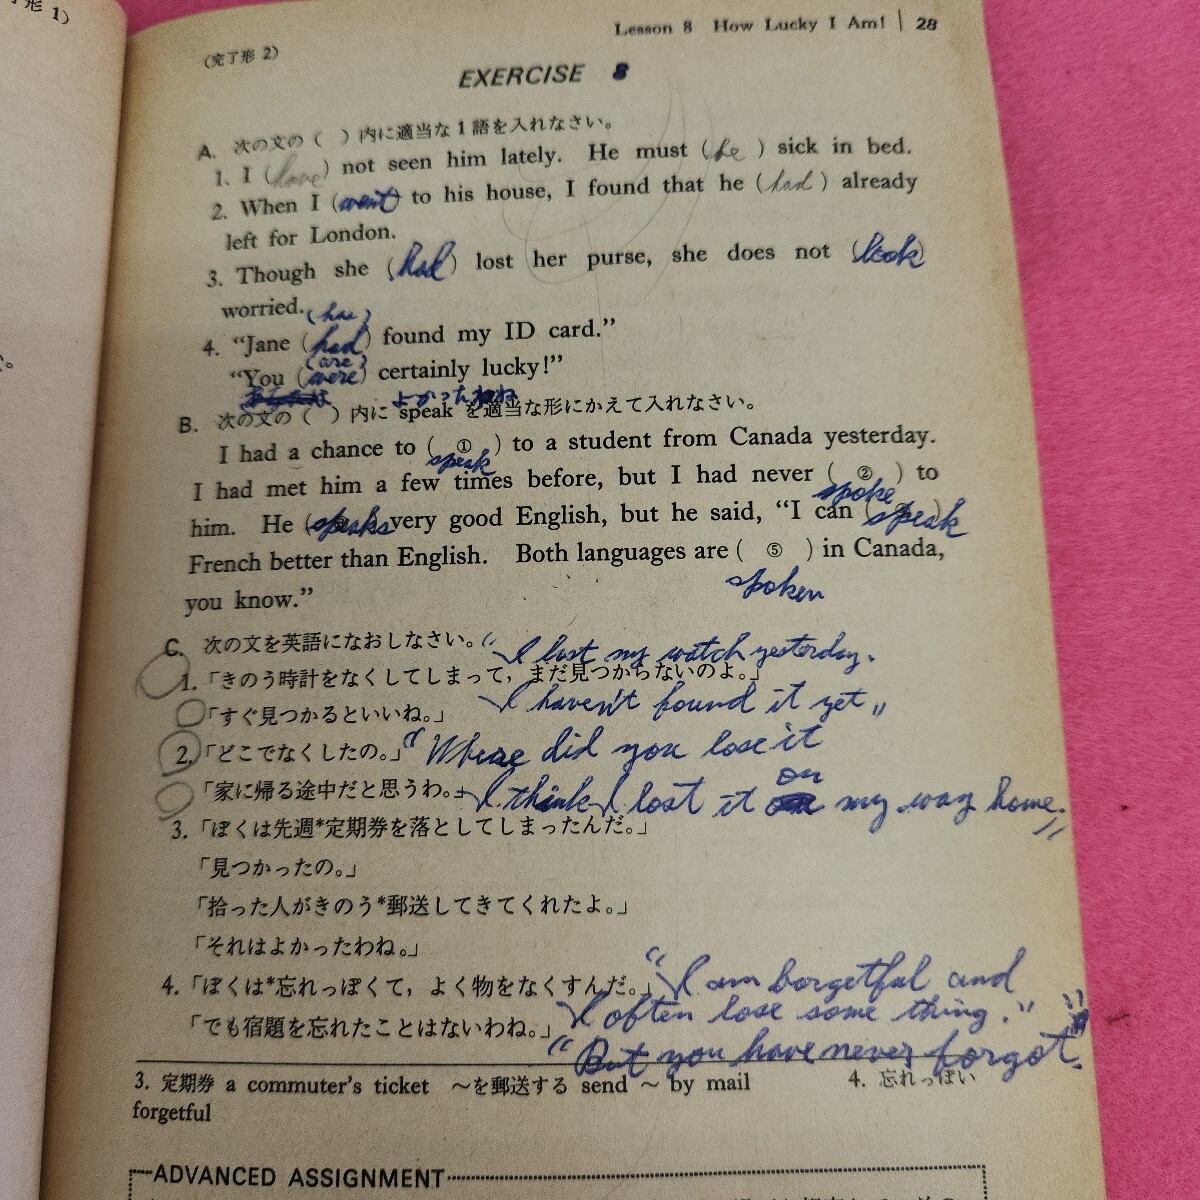 Lesson 8 How Lucky I Am! 28
(完了形 2)
EXERCISE 8
A. 次の文の( )内に適当な1語を入れなさい。
1. I (have) not seen him lately. He must (be) sick in bed.
2. When I (went) to his house, I found that he (had) already
left for London.
3. Though she (had) lost her purse, she does not (look)
worried.
(has)
4. "Jane (had) found my ID card."
(are)
"You (were) certainly lucky!"
よかったわね
B. 次の文の( )内に speak を適当な形にかえて入れなさい。
I had a chance to ( ① ) to a student from Canada yesterday.
speak
I had met him a few times before, but I had never ( ② ) to
spoke
him. He (speaks very good English, but he said, "I can (speak
French better than English. Both languages are ( ⑤ ) in Canada,
spoken
you know."
C. 次の文を英語になおしなさい。
"I lost my watch yesterday.
1.「きのう時計をなくしてしまって, まだ見つからないのよ。」
I haven't found it yet"
「すぐ見つかるといいね。」
2.「どこでなくしたの。」 "Where did you lose it
on
「家に帰る途中だと思うわ。」 I think I lost it my way home."
3.「ぼくは先週*定期券を落としてしまったんだ。」
「見つかったの。」
「拾った人がきのう*郵送してきてくれたよ。」
「それはよかったわね。」
4.「ぼくは*忘れっぽくて, よく物をなくすんだ。」 "I am borgetful and
I often lose some thing."
「でも宿題を忘れたことはないわね。」
"But you have never forgot
3. 定期券 a commuter's ticket ～を郵送する send ～ by mail 4. 忘れっぽい
forgetful
ADVANCED ASSIGNMENT